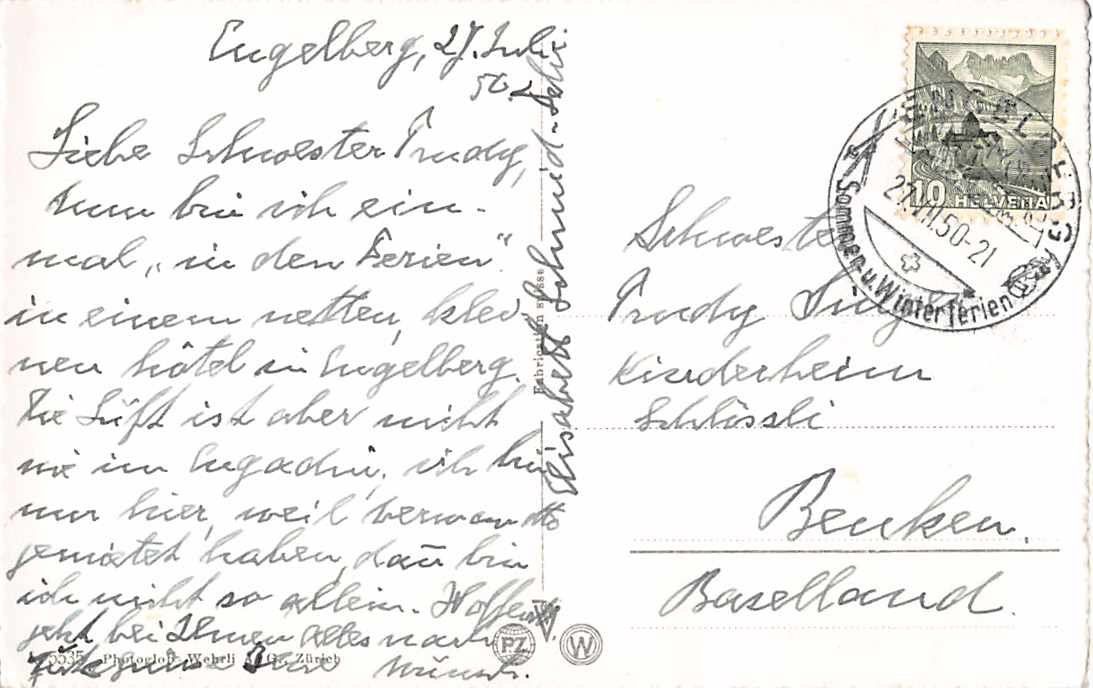 Engelberg, 27. Juli
50.
Liebe Schwester Trudy,
Nun bin ich ein-
mal „in den Ferien"
in einem netten, klei-
nen hôtel in Engelberg.
Die Luft ist aber nicht
wie im Engadin, ich bin
nur hier, weil Verwandte
gemietet haben, dann bin
ich nicht so allein. Hoffentl.
geht bei Ihnen alles nach
Wunsch.
Elisabeth Schmid-
Fabrication suisse
5535 Photoglob-Wehrli A.G., Zürich
PZ
W
ENGELBERG
27.VII.50-21
Sommer u. Winterferien
10 HELVETIA
Schwester
Trudy
Kinderheim
Schlössli
Benken.
Baselland.